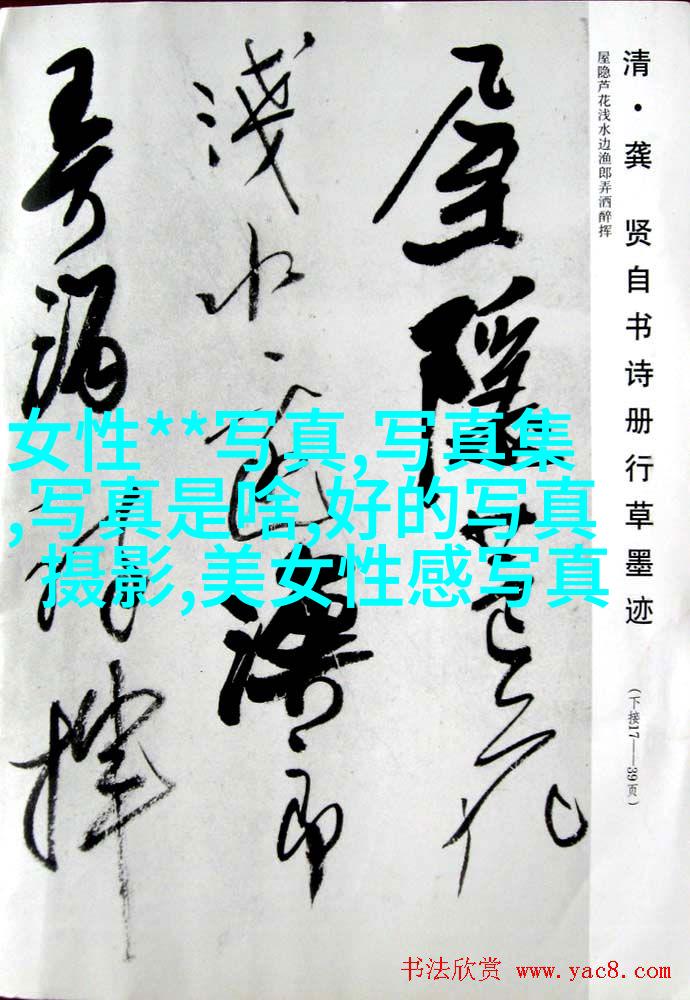 清·龚 贤自书诗册行草墨迹
(下接17——39页)
屋隐芦花浅水边渔郎弄洒醉挥
屋隐芦花
浅水边渔郎
弄酒醉挥
女性**写真,写真集
,写真是啥,好的写真
摄影,美女性感写真
书法欣赏 www.yac8.com